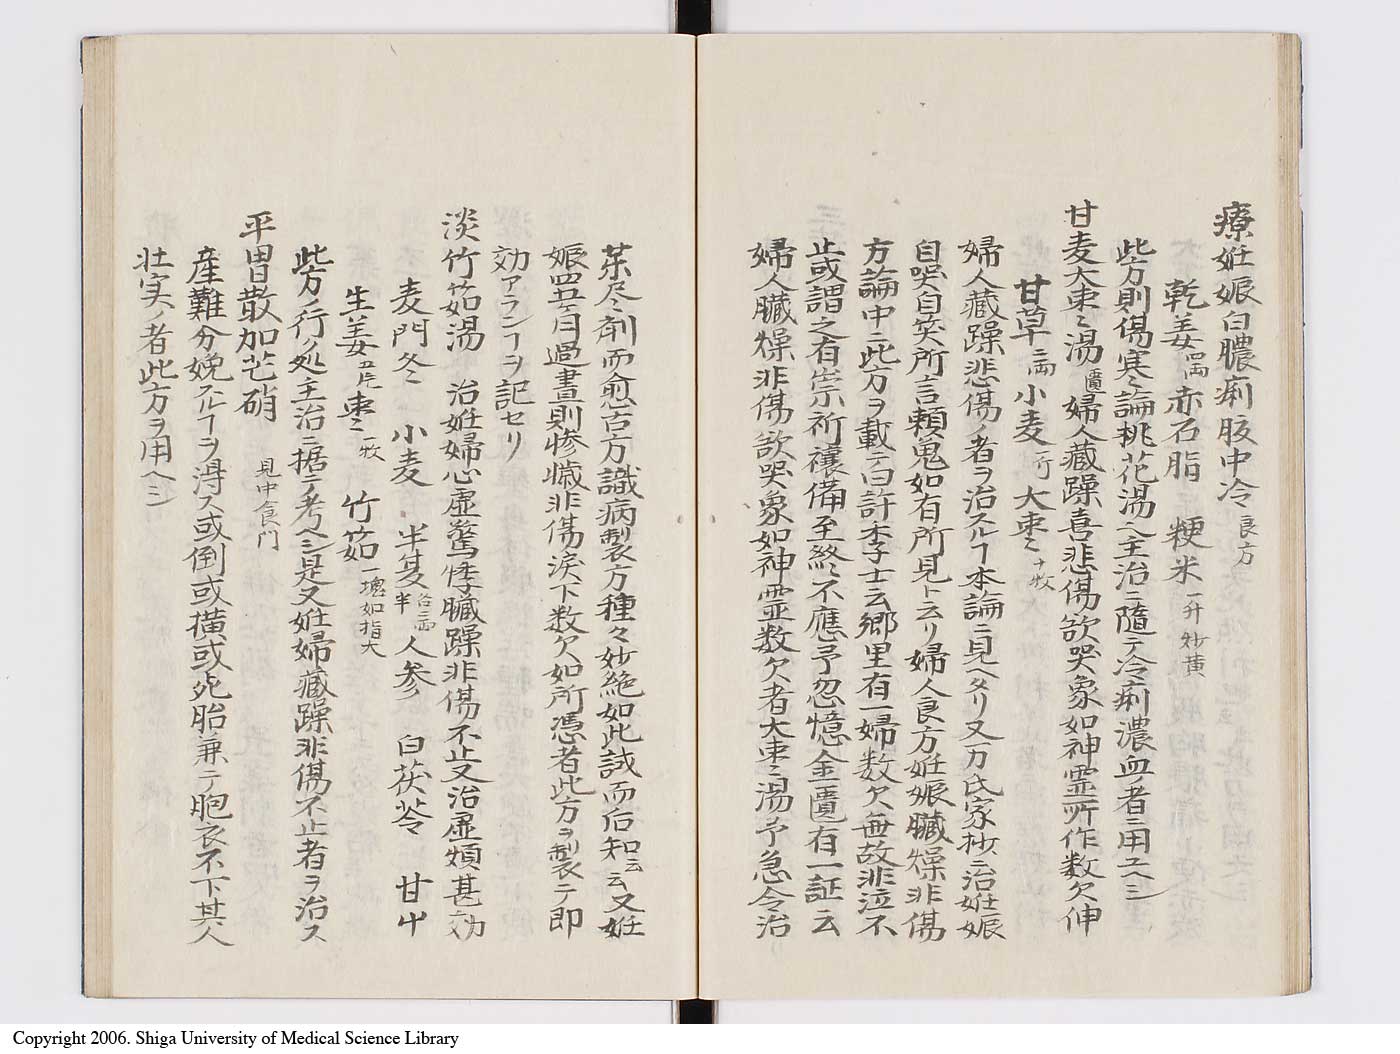 療妊娠白膿痢腹中冷 良方
乾姜四両 赤石脂 粳米一升炒黄
此方則傷寒論桃花湯ヘ主治ニ随テ冷痢濃血ノ者ニ用ユヘシ
甘麦大棗湯 匱 婦人蔵躁喜悲傷欲哭象如神霊所作数欠伸
甘草二両 小麦一斤 大棗十枚
婦人蔵躁悲傷ノ者ヲ治スルヿ本論ニ見ヘタリ又万氏家抄ニ治妊娠
自哭自笑所言頼鬼如有所見ト云リ婦人良方妊娠臓燥非傷
方論中ニ此方ヲ載テ曰許李士云郷里有一婦数欠無故非泣不
止或謂之有祟祈禳備至終不應予忽憶金匱有一証云
婦人臓燥非傷欲哭象如神霊数欠者大棗湯予急令治
薬尽剤而愈古方識病製方種々妙絶如此試而后知云云又妊
娠四五ケ月過晝則惨慽非傷涙下数欠如所憑者此方ヲ製テ即
効アランヿヲ記セリ
淡竹茹湯 治妊婦心虚驚悸臓躁非傷不止又治虚煩甚効
麦門冬 小麦 半夏各二両半 人参 白茯苓 甘艸
生姜五片 棗一枚 竹茹一塊如指大
此方ノ行ク処主治ニ据テ考ヘシ是又妊婦蔵躁非傷不止者ヲ治ス
平胃散加芒硝 見中食門
産難分娩スルヿヲ淂ス或倒或横或死胎兼テ胞衣不下其人
壮実ノ者此方ヲ用ヘシ
Copyright 2006. Shiga University of Medical Science Library